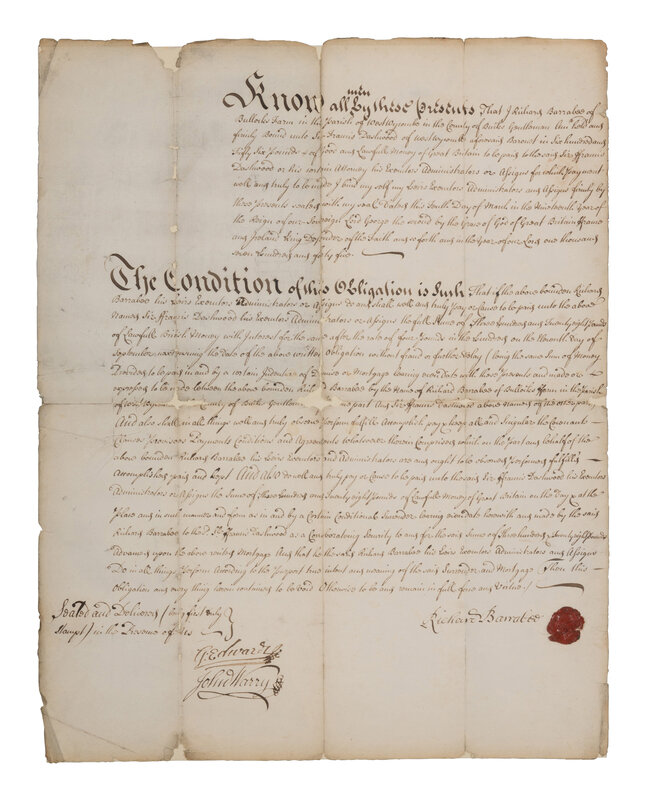 Know all men by these Presents That I Richard Barrabee of
Bullocks Farm in the Parish of West Wycombe in the County of Bucks Gentleman am held and
firmly Bound unto Sir Francis Dashwood of West Wycombe aforesaid Baronet in Six hundred and
fifty Six Pounds of good and Lawfull Money of Great Britain to be paid to the said Sir Francis
Dashwood or his certain Attorney his Executors Administrators or Assigns for which Payment
well and truly to be made I bind my self my Heirs Executors Administrators and Assigns firmly by
these presents sealed with my seal Dated this Day of March in the Nineteenth Year of
the Reign of our Sovereign Lord George the second by the Grace of God of Great Britain France
and Ireland King Defender of the Faith and so forth and in the Year of our Lord one thousand
seven hundred and forty five
The Condition of this Obligation is Such That if the above bounden Richard
Barrabee his Heirs Executors Administrators or Assigns do and shall well and truly pay or Cause to be paid unto the above
Named Sir Francis Dashwood his Executors Administrators or Assigns the full Sume of Three hundred and Twenty eight pounds
of Lawfull British Money with Interest for the same after the rate of four Pounds in the hundred on the Day of
September next ensuing the date of the above written Obligation without fraud or further Delay (being the same Sum of Money
to be paid in and by a certain Indenture of Demise or Mortgage bearing even date with these presents and made or
expressed to be made between the above bounden Richard Barrabee by the Name of Richard Barrabee of Bullocks Farm in the Parish
of West Wycombe County of Bucks Gentleman one part And Sir Francis Dashwood above Named of the other part)
And also shall in all things well and truly observe perform fulfill Accomplish pay & keep all and Singular the Covenants
Clauses Provisoes Payments Conditions and Agreements whatsoever therein Comprised which on the part and behalf of the
above bounden Richard Barrabee his Heirs Executors and Administrators are and ought to be observed performed fulfilled
Accomplished paid and kept And also do well and truly pay or Cause to be paid unto the said Sir Francis Dashwood his Executors
Administrators or Assigns the Sume of Three hundred and Twenty eight Pounds of Lawfull Money of Great Britain on the Day & at the
Place and in such manner and form as in and by a Certain Conditional Surrender bearing even date herewith and made by the said
Richard Barrabee to the sd. Sir Francis Dashwood as a Corroborating Security to and for the said Sume of Three hundred & Twenty eight Pounds
Advanced upon the above recited Mortgage And that he the said Richard Barrabee his Heirs Executors Administrators and Assigns
Do in all things perform According to the Purport true intent and meaning of the said Surrender and Mortgage Then this
Obligation and every thing herein contained to be Void Otherwise to be and remain in full force and Virtue
Sealed and Delivered (being first duly
Stampt) in the Presence of us
Richard Barrabee
G: Edwards
John Harry